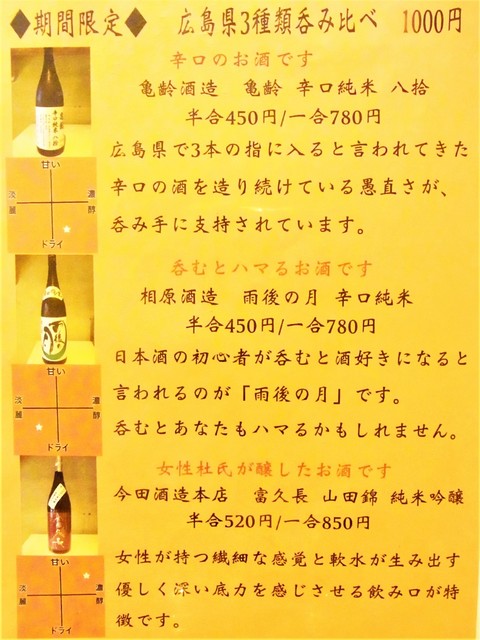 ◆期間限定◆　広島県3種類呑み比べ　1000円
辛口のお酒です
亀齢酒造　亀齢 辛口純米 八拾
半合450円/一合780円
広島県で3本の指に入ると言われてきた
辛口の酒を造り続けている愚直さが、
呑み手に支持されています。
甘い
淡麗
濃醇
ドライ
呑むとハマるお酒です
相原酒造　雨後の月 辛口純米
半合450円/一合780円
日本酒の初心者が呑むと酒好きになると
言われるのが「雨後の月」です。
呑むとあなたもハマるかもしれません。
甘い
淡麗
濃醇
ドライ
女性杜氏が醸したお酒です
今田酒造本店　富久長 山田錦 純米吟醸
半合520円/一合850円
女性が持つ繊細な感覚と軟水が生み出す
優しく深い底力を感じさせる飲み口が特
徴です。
甘い
淡麗
濃醇
ドライ